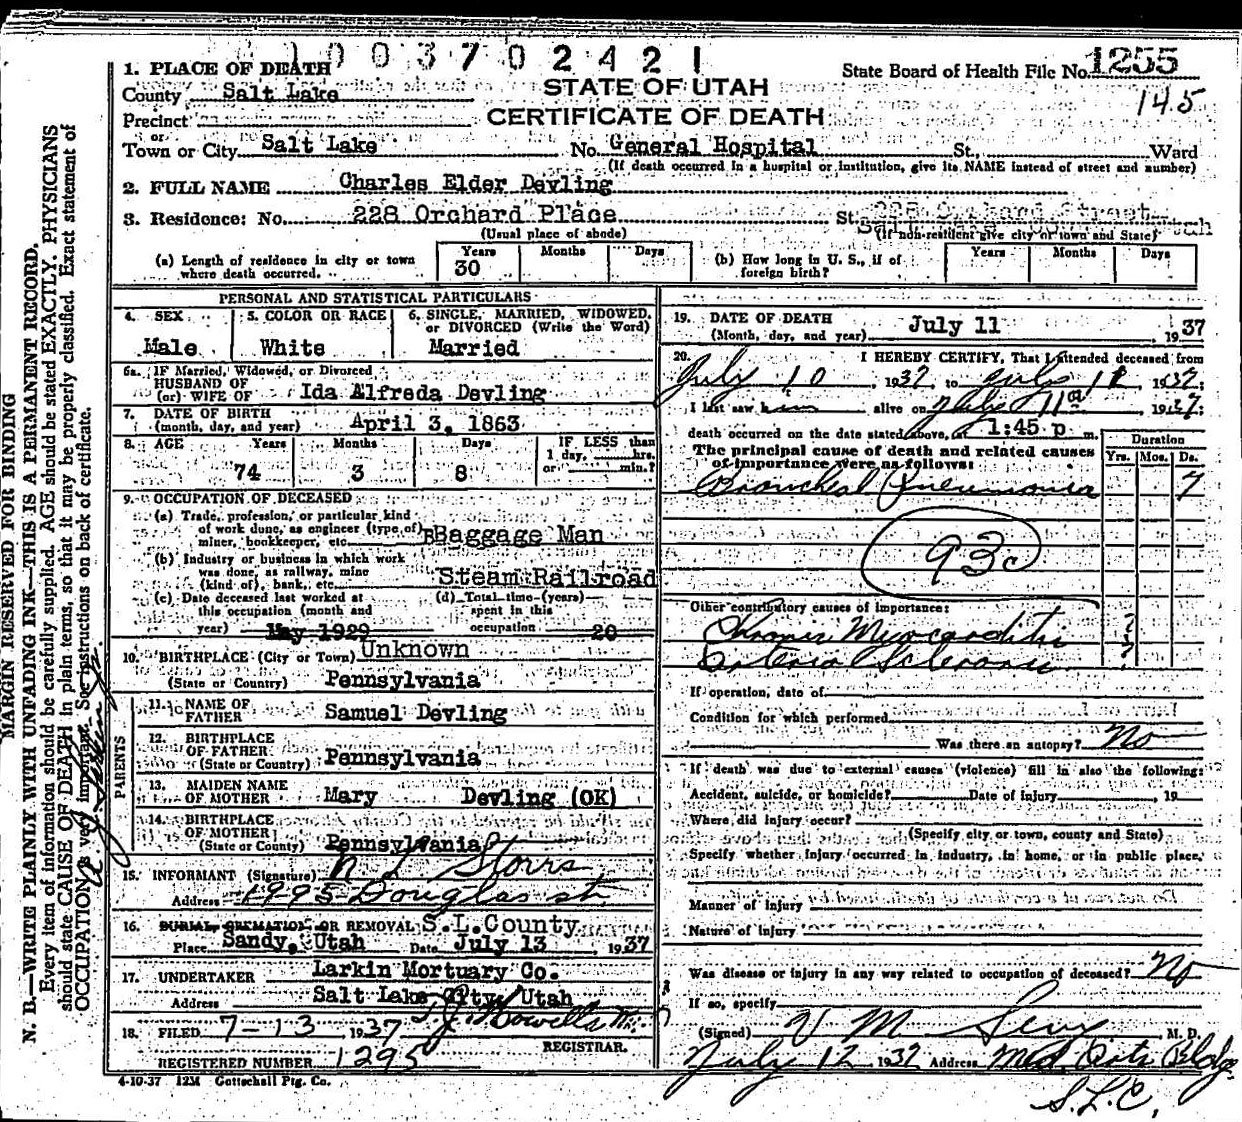 1003702421
1. PLACE OF DEATH
STATE OF UTAH
State Board of Health File No. 1255
County Salt Lake
145
CERTIFICATE OF DEATH
Precinct
or
Town or City Salt Lake No. General Hospital St., Ward
(If death occurred in a hospital or institution, give its NAME instead of street and number)
2. FULL NAME Charles Elder Devling
3. Residence: No. 228 Orchard Place St. 228 Orchard Street
(Usual place of abode) (If non-resident give city or town and State)
(a) Length of residence in city or town where death occurred. Years 30 Months Days
(b) How long in U. S., if of foreign birth? Years Months Days
PERSONAL AND STATISTICAL PARTICULARS
4. SEX Male
5. COLOR OR RACE White
6. SINGLE, MARRIED, WIDOWED, or DIVORCED (Write the Word) Married
6a. IF Married, Widowed, or Divorced
HUSBAND OF
(or) WIFE OF Ida Alfreda Devling
7. DATE OF BIRTH
(month, day, and year) April 3, 1863
8. AGE Years 74 Months 3 Days 8 IF LESS than 1 day, hrs. or min.?
9. OCCUPATION OF DECEASED
(a) Trade, profession, or particular kind
of work done, as engineer (type of)
miner, bookkeeper, etc. BBaggage Man
(b) Industry or business in which work
was done, as railway, mine
(kind of), bank, etc. Steam Railroad
(c) Date deceased last worked at
this occupation (month and
year) May 1929
(d) Total time (years)
spent in this
occupation 20
10. BIRTHPLACE (City or Town) Unknown
(State or Country) Pennsylvania
PARENTS
11. NAME OF
FATHER Samuel Devling
12. BIRTHPLACE
OF FATHER
(State or Country) Pennsylvania
13. MAIDEN NAME
OF MOTHER Mary Devling (OK)
14. BIRTHPLACE
OF MOTHER
(State or County) Pennsylvania
15. INFORMANT (Signature) N L Storrs
Address 1995 Douglas St.
16. BURIAL, CREMATION OR REMOVAL: S.L.County
Place Sandy, Utah Date July 13, 1937
17. UNDERTAKER Larkin Mortuary Co.
Address Salt Lake City, Utah
18. FILED 7-13 1937 T J Howells
REGISTRAR.
REGISTERED NUMBER 1295
4-10-37 12M Gottschall Ptg. Co.
19. DATE OF DEATH
(Month, day, and year) July 11, 1937
20. I HEREBY CERTIFY, That I attended deceased from
July 10, 1937, to July 11, 1937;
I last saw him alive on July 11th 1937;
death occurred on the date stated above, at 1:45 p m.
The principal cause of death and related causes
of importance were as follows:
Duration
Yrs. Mos. Ds.
Bronchial Pneumonia 7
93c
Other contributory causes of importance:
Chronic Myocarditis ?
Arterio Sclerosis ?
If operation, date of
Condition for which performed
Was there an autopsy? No
If death was due to external causes (violence) fill in also the following:
Accident, suicide, or homicide? Date of injury , 19
Where did injury occur?
(Specify city or town, county and State)
Specify whether injury occurred in industry, in home, or in public place,
Manner of injury
Nature of injury
Was disease or injury in any way related to occupation of deceased? No
If so, specify
(Signed) V M Sevy M. D.
July 12 1937 Address Med. Arts Bldg.
S.L.C.
MARGIN RESERVED FOR BINDING
N. B.—WRITE PLAINLY WITH UNFADING INK—THIS IS A PERMANENT RECORD.
Every item of information should be carefully supplied. AGE should be stated EXACTLY. PHYSICIANS
should state CAUSE OF DEATH in plain terms, so that it may be properly classified. Exact statement of
OCCUPATION is very important. See instructions on back of certificate.